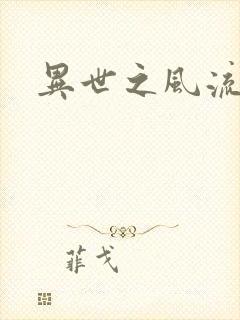 異世之風流
菲戈